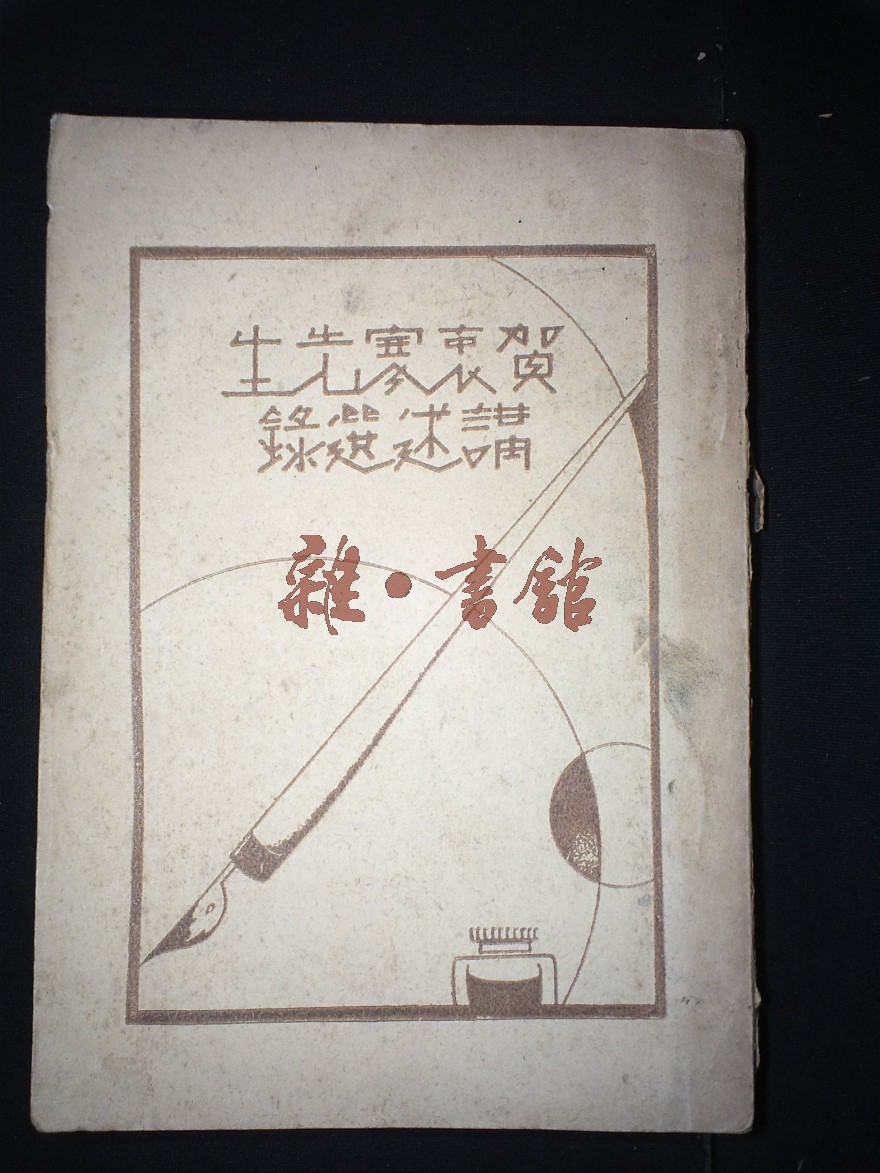 賀衷寒先生
講述選錄
雜·書館